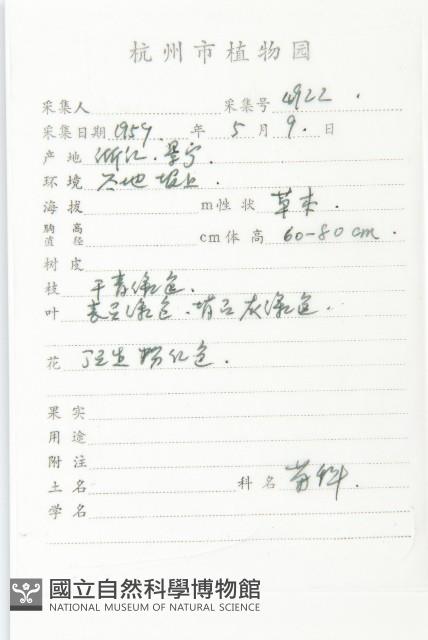 杭州市植物园
采集人 采集号 4922.
采集日期 1959. 年 5 月 9. 日
产地 浙江.景宁.
环境 地 坡上.
海拔 m 性状 草本.
胸高直径 cm 体高 60-80cm.
树皮
枝 干青绿色.
叶 表面绿色.背面灰绿色.
花 顶生 粉红色.
果实
用途
附注
土名 科名 科.
学名
國立自然科學博物館
NATIONAL MUSEUM OF NATURAL SCIENCE